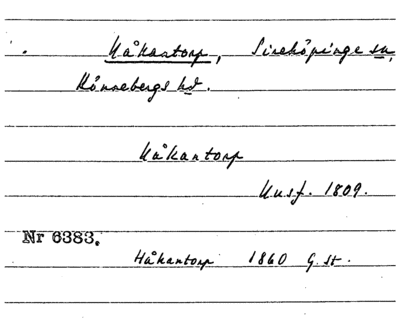 Håkantorp, Sireköpinge sn,
Rönnebergs hd.
Håkantorp
Husf. 1809.
Nr 6383.
Håkantorp 1860 G. St.